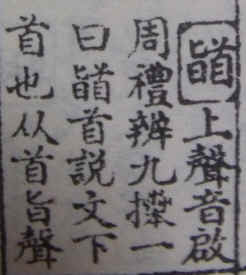 䭫上聲音啟
周禮辨九𢷎一
曰䭫首説文下
首也从首旨聲